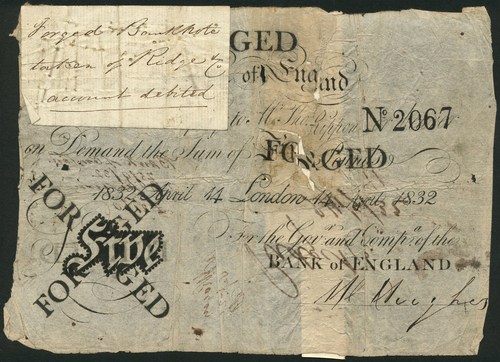 Forged Banknote
taken of Ridge & Co
account debited
GED
of England
to Mr. Tho. Rippon No 2067
on Demand the Sum of Pounds
FORGED
1832 April 14 London 14 April 1832
FORGED
Five
FORGED
For the Govr. and Compa. of the
BANK of ENGLAND